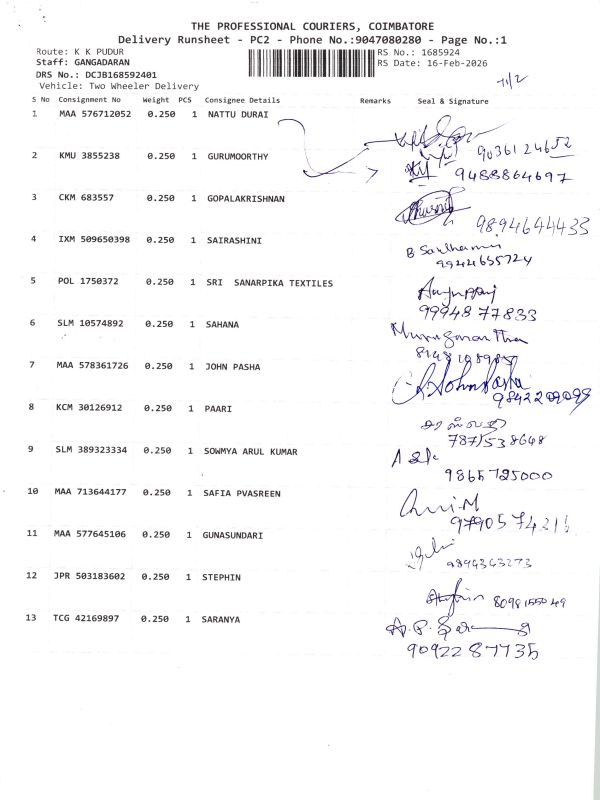 THE PROFESSIONAL COURIERS, COIMBATORE
Delivery Runsheet - PC2 - Phone No.:9047080280 - Page No.:1
Route: K K PUDUR RS No.: 1685924
Staff: GANGADARAN RS Date: 16-Feb-2026
DRS No.: DCJB168592401
Vehicle: Two Wheeler Delivery
S No Consignment No Weight PCS Consignee Details Remarks Seal & Signature
1 MAA 576712052 0.250 1 NATTU DURAI
9036124652
2 KMU 3855238 0.250 1 GURUMOORTHY
9488864697
3 CKM 683557 0.250 1 GOPALAKRISHNAN
9894644433
4 IXM 509650398 0.250 1 SAIRASHINI
9944655724
5 POL 1750372 0.250 1 SRI SANARPIKA TEXTILES
9994877833
6 SLM 10574892 0.250 1 SAHANA
7 MAA 578361726 0.250 1 JOHN PASHA
8 KCM 30126912 0.250 1 PAARI
9 SLM 389323334 0.250 1 SOWMYA ARUL KUMAR
9865725000
10 MAA 713644177 0.250 1 SAFIA PVASREEN
11 MAA 577645106 0.250 1 GUNASUNDARI
9894343273
12 JPR 503183602 0.250 1 STEPHIN
8098155049
13 TCG 42169897 0.250 1 SARANYA
9092287735